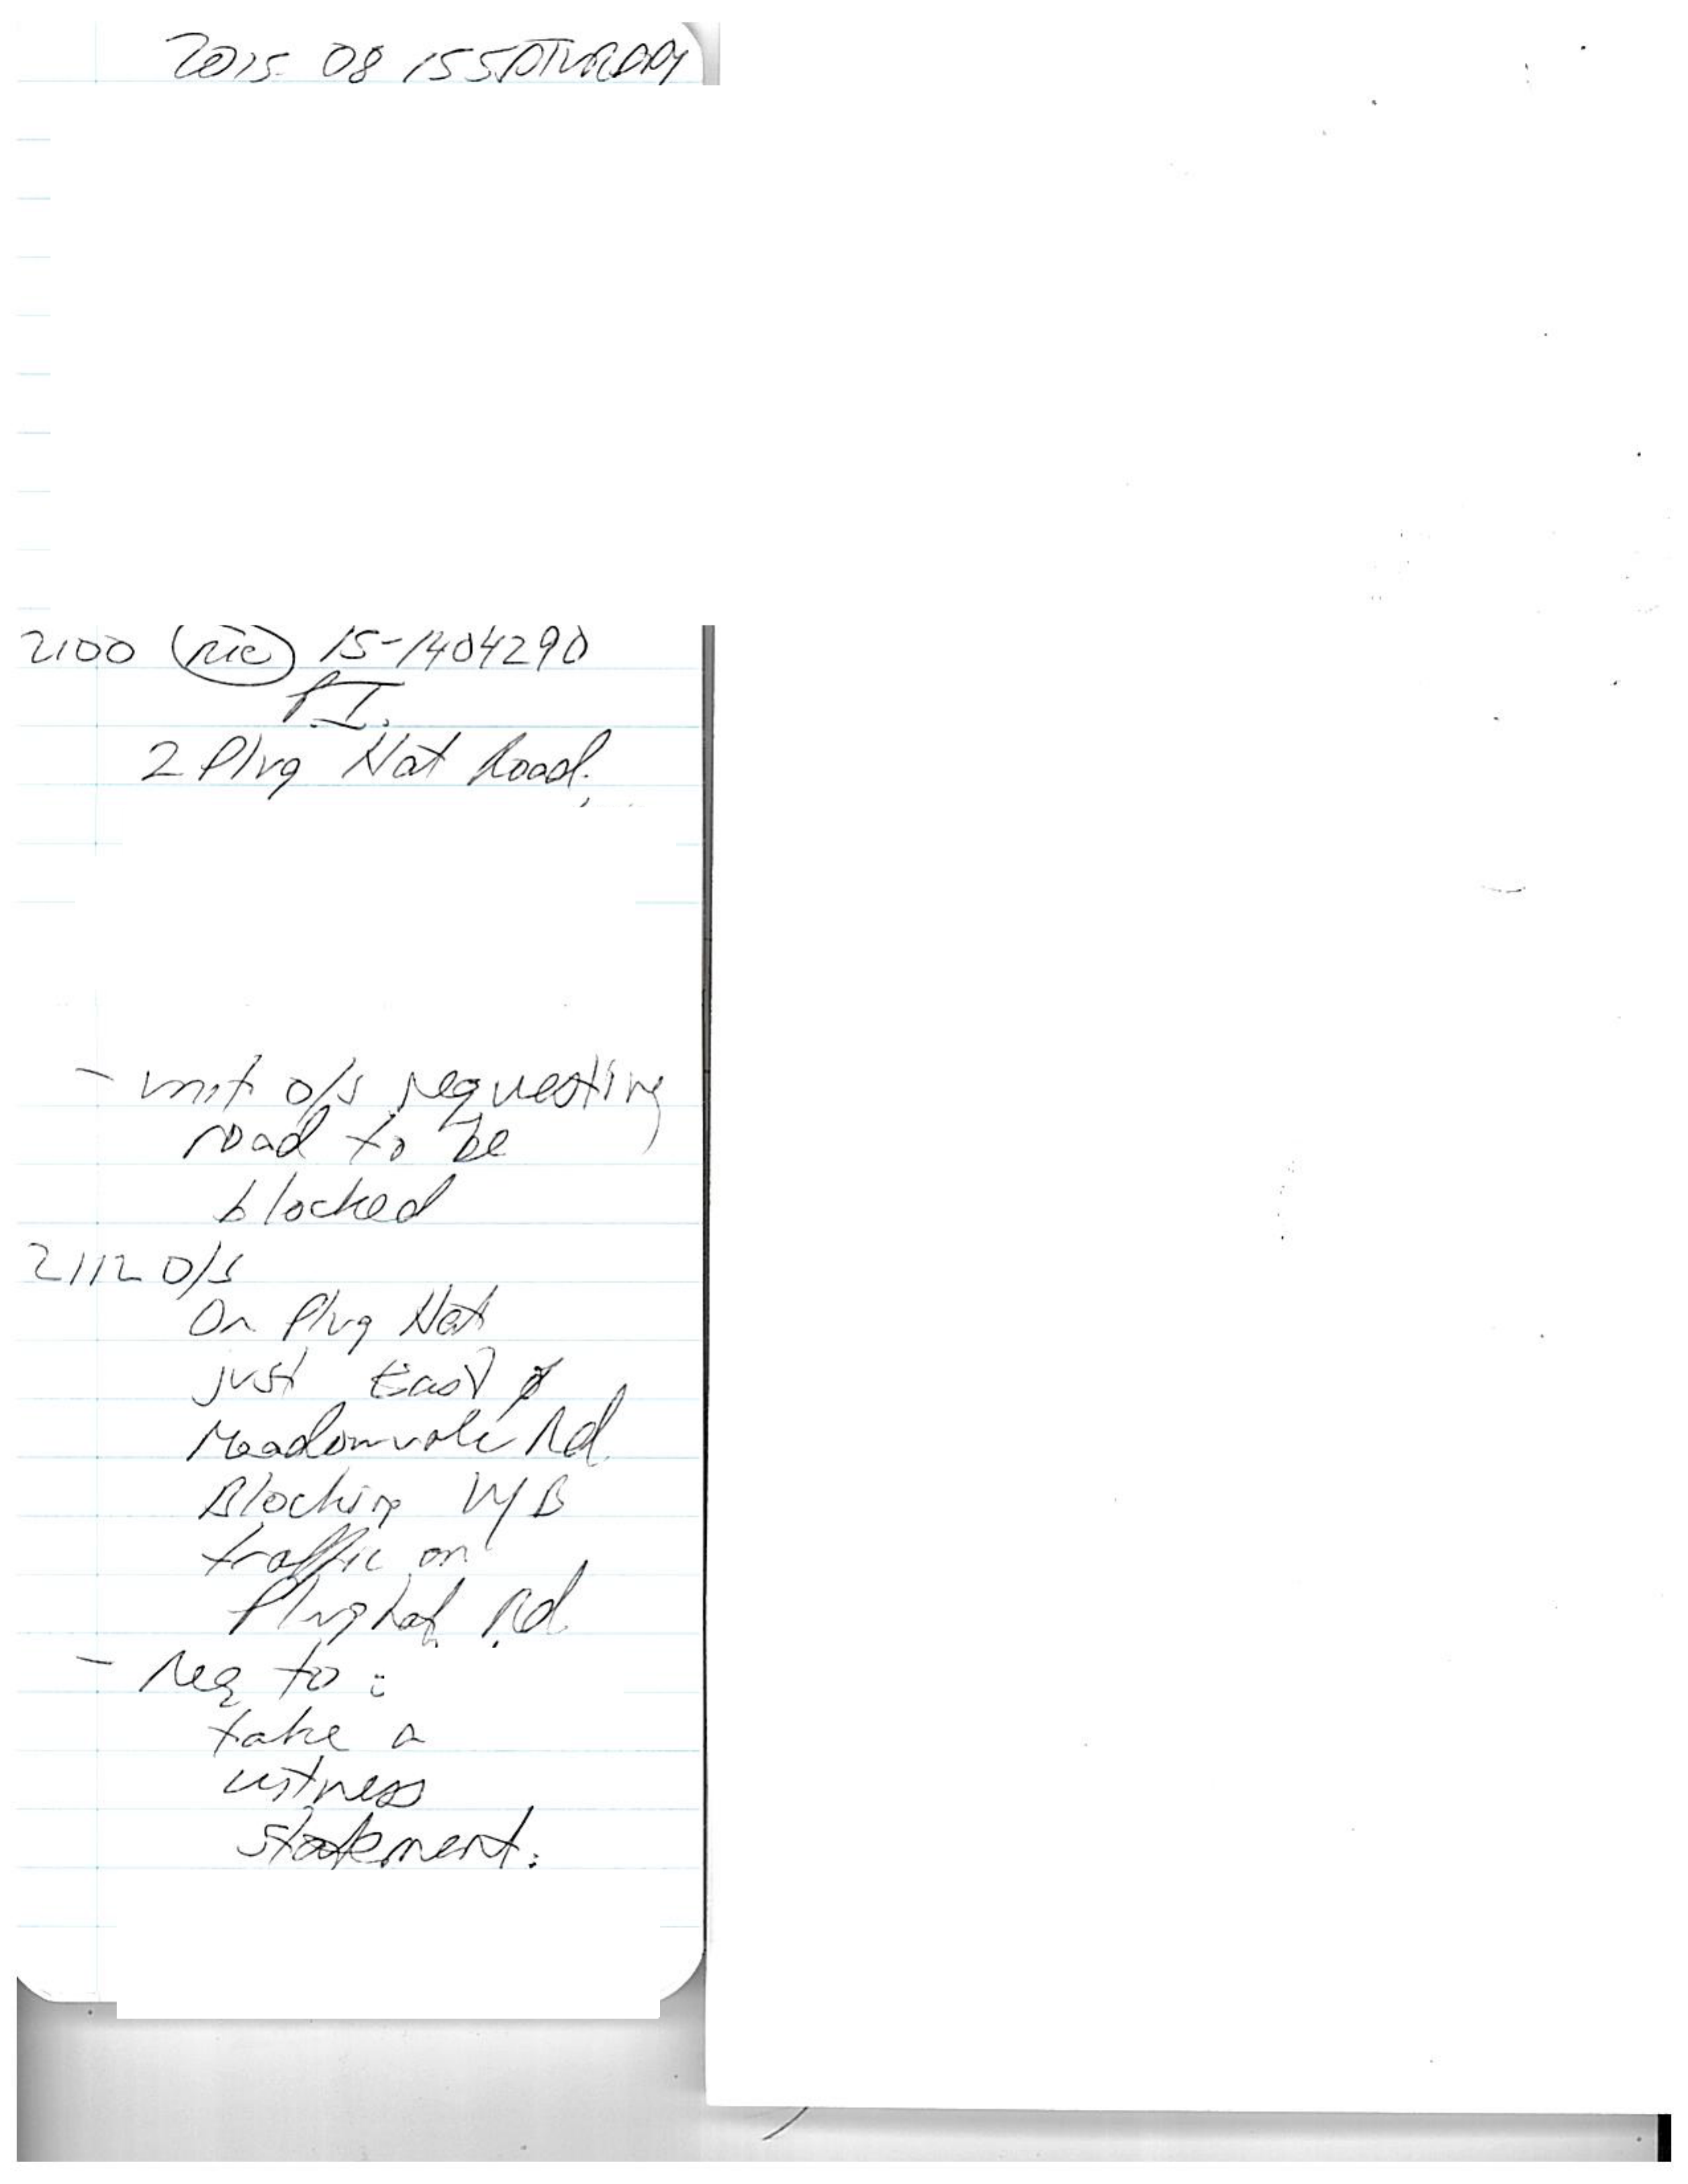 2015 08 15 SATURDAY
2100 R/C 15-1404290
P.I.
2 Plug Hat Road.
- unit o/s requesting
road to be
blocked
2112 O/S
On Plug Hat
just East of
Meadowvale Rd.
Blocking W/B
traffic on
Plughat Rd.
- Req to:
take a
witness
statement.